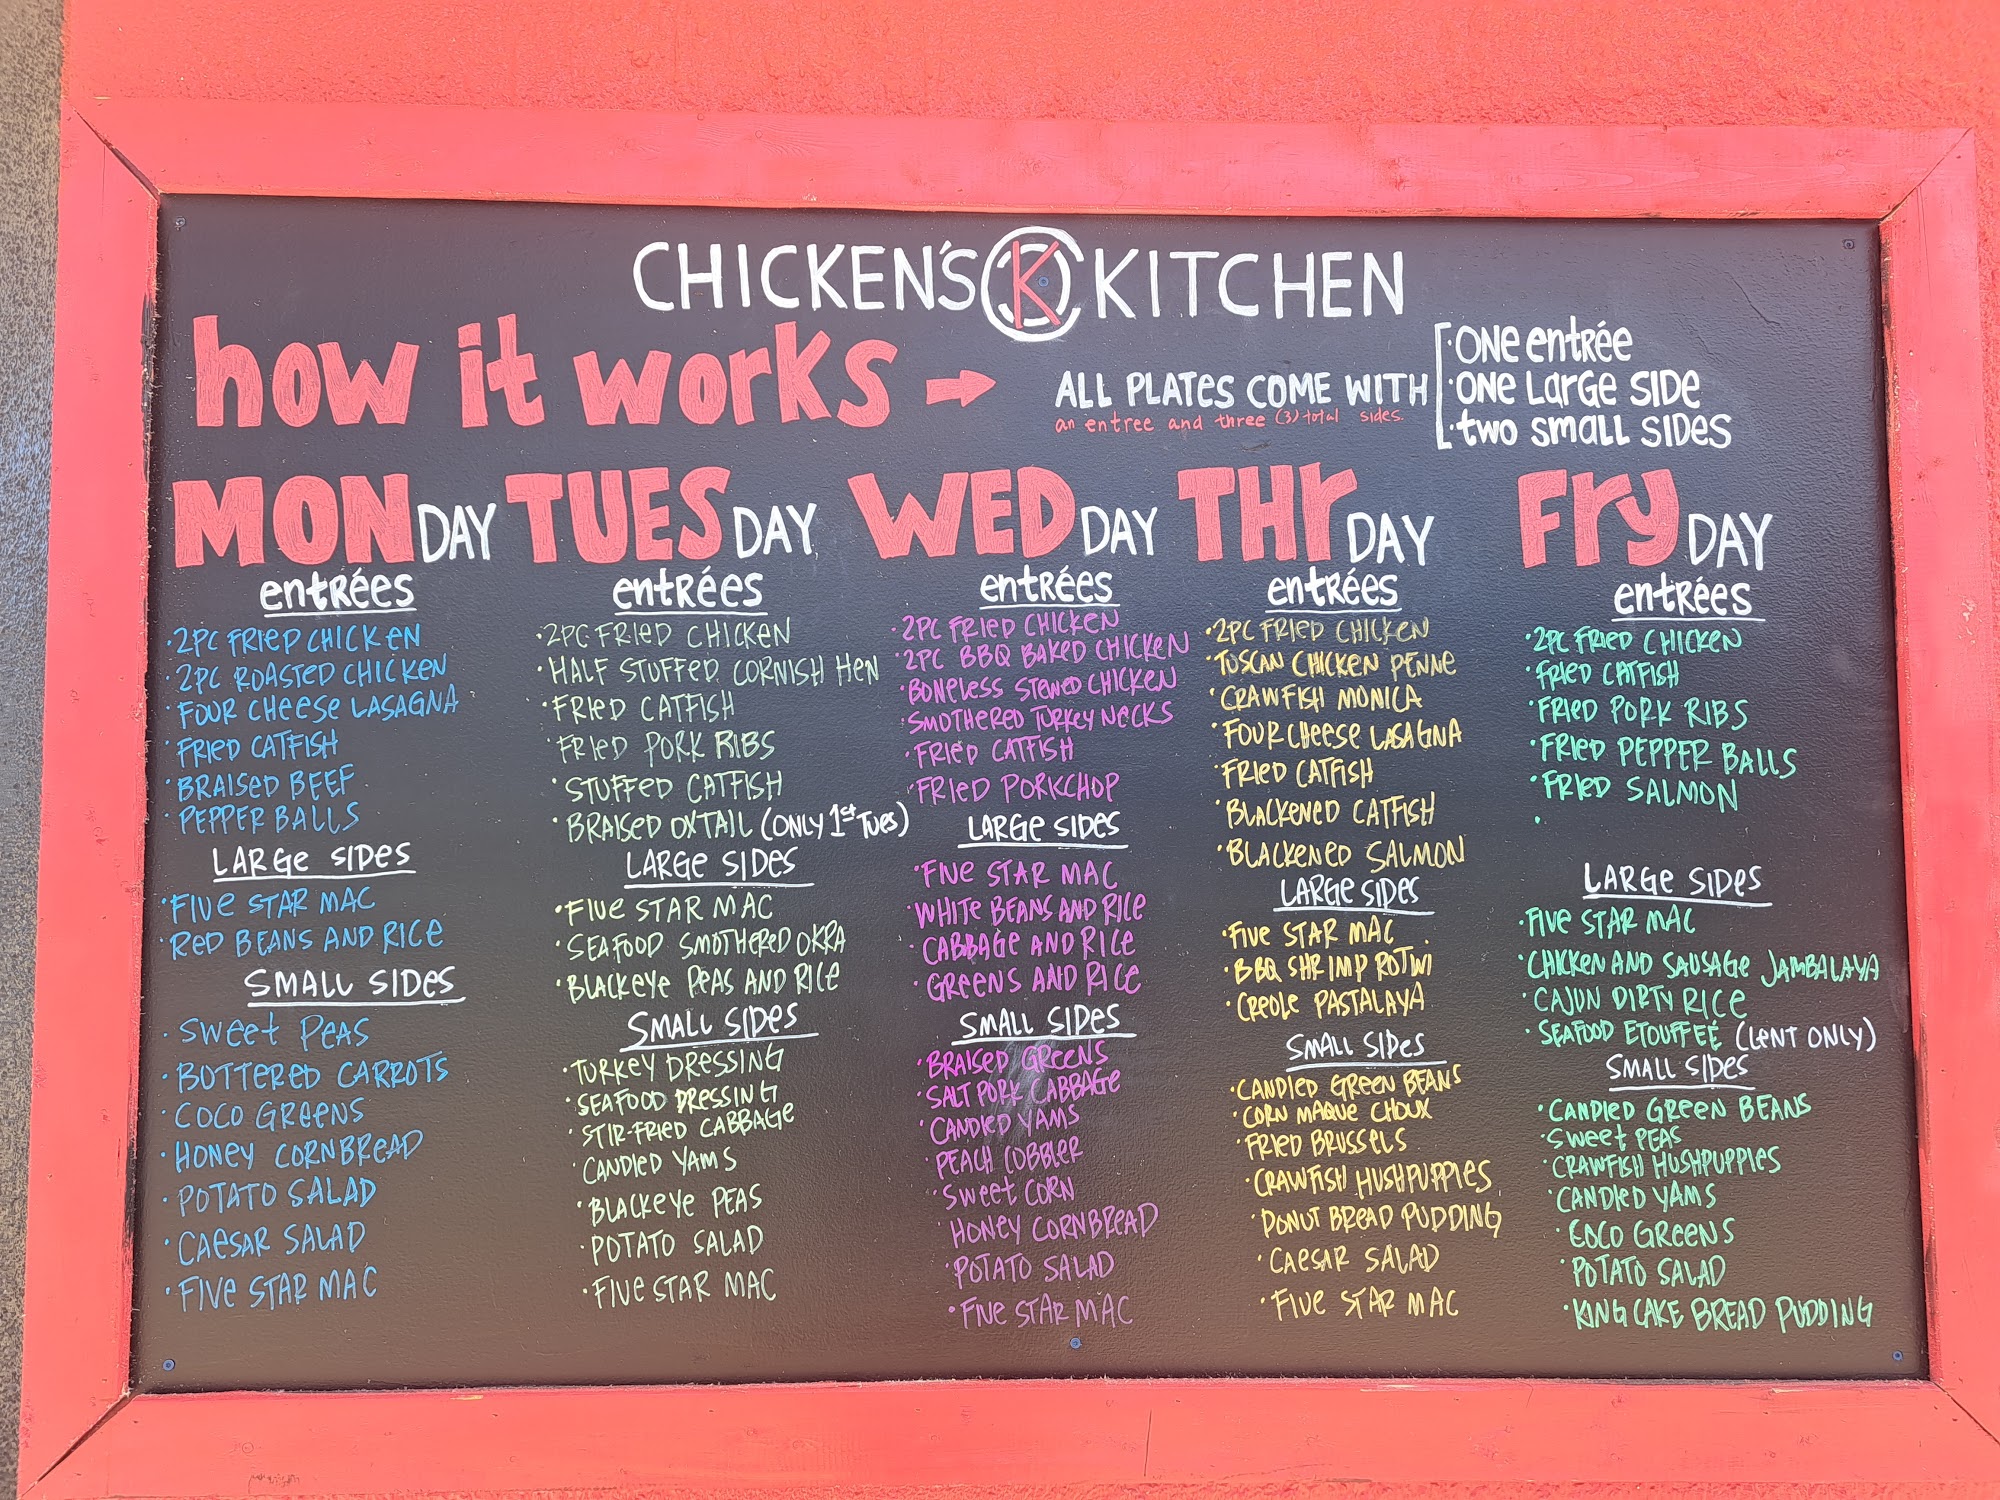 CHICKEN'S K KITCHEN
how it works →
ALL PLATES COME WITH
an entree and three (3) total sides.
· ONE entRée
· ONE LaRGe SIDe
· two small SIDes
MONDAY
entRées
· 2PC FRIED CHICKEN
· 2PC ROASTED CHICKEN
· FOUR CHeese LASAGNA
· FRIED CATFISH
· BRAISED BEEF
· PEPPER BALLS
LARGe SIDes
· FIVe STAR MAC
· ReD BEANS AND RICE
SMALL SIDES
· SWeet PeAS
· BOTTERED CARROTS
· COCO GREENS
· HONeY CORNBREAD
· POTATO SALAD
· CAeSAR SALAD
· FIVe STAR MAC
TUESDAY
entRées
· 2PC FRIeD CHICKeN
· HALF STUFFED CORNISH HeN
· FRIED CATFISH
· FRIED PORK RIBS
· STUFFED CATFISH
· BRAISED OXTAIL (ONLY 1st Tues)
LARGe SIDES
· FIVe STAR MAC
· SEAFOOD SMOTHeReD OKRA
· BLACKeYe PeAS AND RICE
SMALL SIDES
· TURKEY DRESSING
· SEAFOOD DRESSING
· STIR-FRIED CABBAGE
· CANDIED YAMS
· BLACKeYe PEAS
· POTATO SALAD
· FIVe STAR MAC
WEDDAY
entRées
· 2PC FRIED CHICKEN
· 2PC BBQ BAKED CHICKEN
· BONeLess STEWED CHICKEN
· SMOTHERED TURKeY NECKS
· FRIeD CATFISH
· FRIED PORKCHOP
LARGe SIDES
· FIVE STAR MAC
· WHITE BEANS AND RICe
· CABBAGE AND RICE
· GREENS AND RICE
SMALL SIDES
· BRAISED GREENS
· SALT PORK CABBAGE
· CANDIED YAMS
· PEACH COBBLER
· SWeet CORN
· HONeY CORNBREAD
· POTATO SALAD
· FIVE STAR MAC
THrDAY
entRées
· 2PC FRIED CHICKEN
· TUSCAN CHICKEN PENNE
· CRAWFISH MONICA
· FOUR CHeese LASAGNA
· FRIED CATFISH
· BLACKENED CATFISH
· BLACKENED SALMON
LARGe SIDes
· FIVe STAR MAC
· BBQ SHRIMP ROTINI
· CReOLe PASTALAYA
SMALL SIDES
· CANDIED GREEN BEANS
· CORN MAQUE CHOUX
· FRIED BRUSSELS
· CRAWFISH HUSHPUPPIES
· DONUT BREAD PUDDING
· CAESAR SALAD
· FIVe STAR MAC
FryDAY
entRées
· 2PC FRIED CHICKEN
· FRIED CATFISH
· FRIED PORK RIBS
· FRIED PEPPER BALLS
· FRIED SALMON
·
LARGe SIDes
· FIVe STAR MAC
· CHICKEN AND SAUSAGe JAMBALAYA
· CAJUN DIRTY RICe
· SEAFOOD ETOUFFEÉ (LeNT ONLY)
SMALL SIDES
· CANDIED GREEN BEANS
· SWeet PEAS
· CRAWFISH HUSHPUPPIES
· CANDIED YAMS
· COCO GREENS
· POTATO SALAD
· KING CAKE BREAD PUDDING